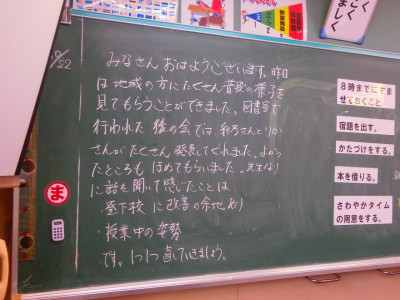 9/22
みなさん おはようございます。昨日
は地域の方にたくさん普段の様子を
見てもらうことができました。図書室で
行われた後の会では、彩乃さんとりか
さんがたくさん発表してくれました。よかっ
たところも ほめてもらいました。先生なり
に話を聞いて感じたことは
・登下校に改善の余地あり
・授業中の姿勢
です。1つ1つ直していきましょう。
ま
8時までにすま
せておくこと
宿題を出す。
かたづけをする。
本を借りる。
さわやかタイム
の用意をする。